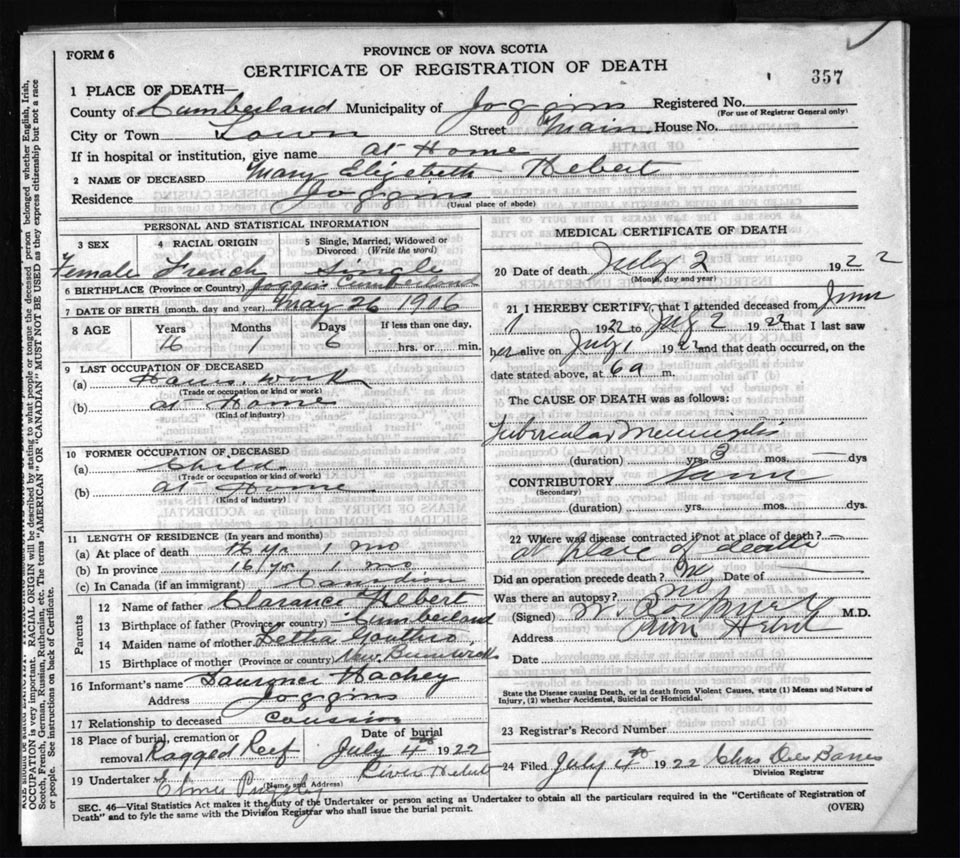 FORM 6
PROVINCE OF NOVA SCOTIA
CERTIFICATE OF REGISTRATION OF DEATH
357
1 PLACE OF DEATH—
County of Cumberland Municipality of Joggins Registered No.
(For use of Registrar General only)
City or Town Town Street Main House No.
If in hospital or institution, give name at Home
2 NAME OF DECEASED Mary Elizabeth Hebert
Residence Joggins
(Usual place of abode)
PERSONAL AND STATISTICAL INFORMATION
3 SEX 4 RACIAL ORIGIN 5 Single, Married, Widowed or Divorced (Write the word)
Female French Single
6 BIRTHPLACE (Province or Country) Joggins Cumberland
7 DATE OF BIRTH (month, day and year) May 26 1906
8 AGE Years Months Days If less than one day,
16 1 6 hrs. or min.
9 LAST OCCUPATION OF DECEASED
(a) work
(Trade or occupation or kind or work)
(b) at Home
(Kind of industry)
10 FORMER OCCUPATION OF DECEASED
(a) Child
(Trade or occupation or kind of work)
(b) at Home
(Kind of industry)
11 LENGTH OF RESIDENCE (In years and months)
(a) At place of death 16 yr 1 mo
(b) In province 16 yr 1 mo
(c) In Canada (if an immigrant) Canadian
Parents
12 Name of father Clarance Hebert
13 Birthplace of father (Province or country) Cumberland
14 Maiden name of mother Letha Gouthro
15 Birthplace of mother (Province or country) New Brunswick
16 Informant's name Hachey
Address Joggins
17 Relationship to deceased
18 Place of burial, cremation or removal Ragged Reef
Date of burial July 4th 1922
River Hebert
19 Undertaker Elmer Pugsley
(Name and Address)
MEDICAL CERTIFICATE OF DEATH
20 Date of death July 2 1922
(Month, day and year)
21 I HEREBY CERTIFY, that I attended deceased from June
11 1922 to July 2 1922 that I last saw
her alive on July 1 1922 and that death occurred, on the
date stated above, at 6 a m.
The CAUSE OF DEATH was as follows:
Tubercular Meningitis
(duration) yrs. 3 mos. — dys
CONTRIBUTORY
(Secondary)
(duration) yrs. mos. dys.
22 Where was disease contracted if not at place of death? —
at place of death
Did an operation precede death? no Date of —
Was there an autopsy? no
(Signed) M.D.
Address River Hebert
Date
State the Disease causing Death, or in death from Violent Causes, state (1) Means and Nature of
Injury, (2) whether Accidental, Suicidal or Homicidal.
23 Registrar's Record Number
24 Filed July 4th 1922 Chas Des Barres
Division Registrar
SEC. 46—Vital Statistics Act makes it the duty of the Undertaker or person acting as Undertaker to obtain all the particulars required in the "Certificate of Registration of
Death" and to fyle the same with the Division Registrar who shall issue the burial permit. (OVER)
OCCUPATION is very important. RACIAL ORIGIN will be described by stating to what people or tongue the deceased person belonged whether English, Irish,
Scotch, French, German, Russian, Ruthenian, etc. The terms "AMERICAN" OR "CANADIAN" MUST NOT BE USED as they express citizenship but not a race
or people. See instructions on back of Certificate.